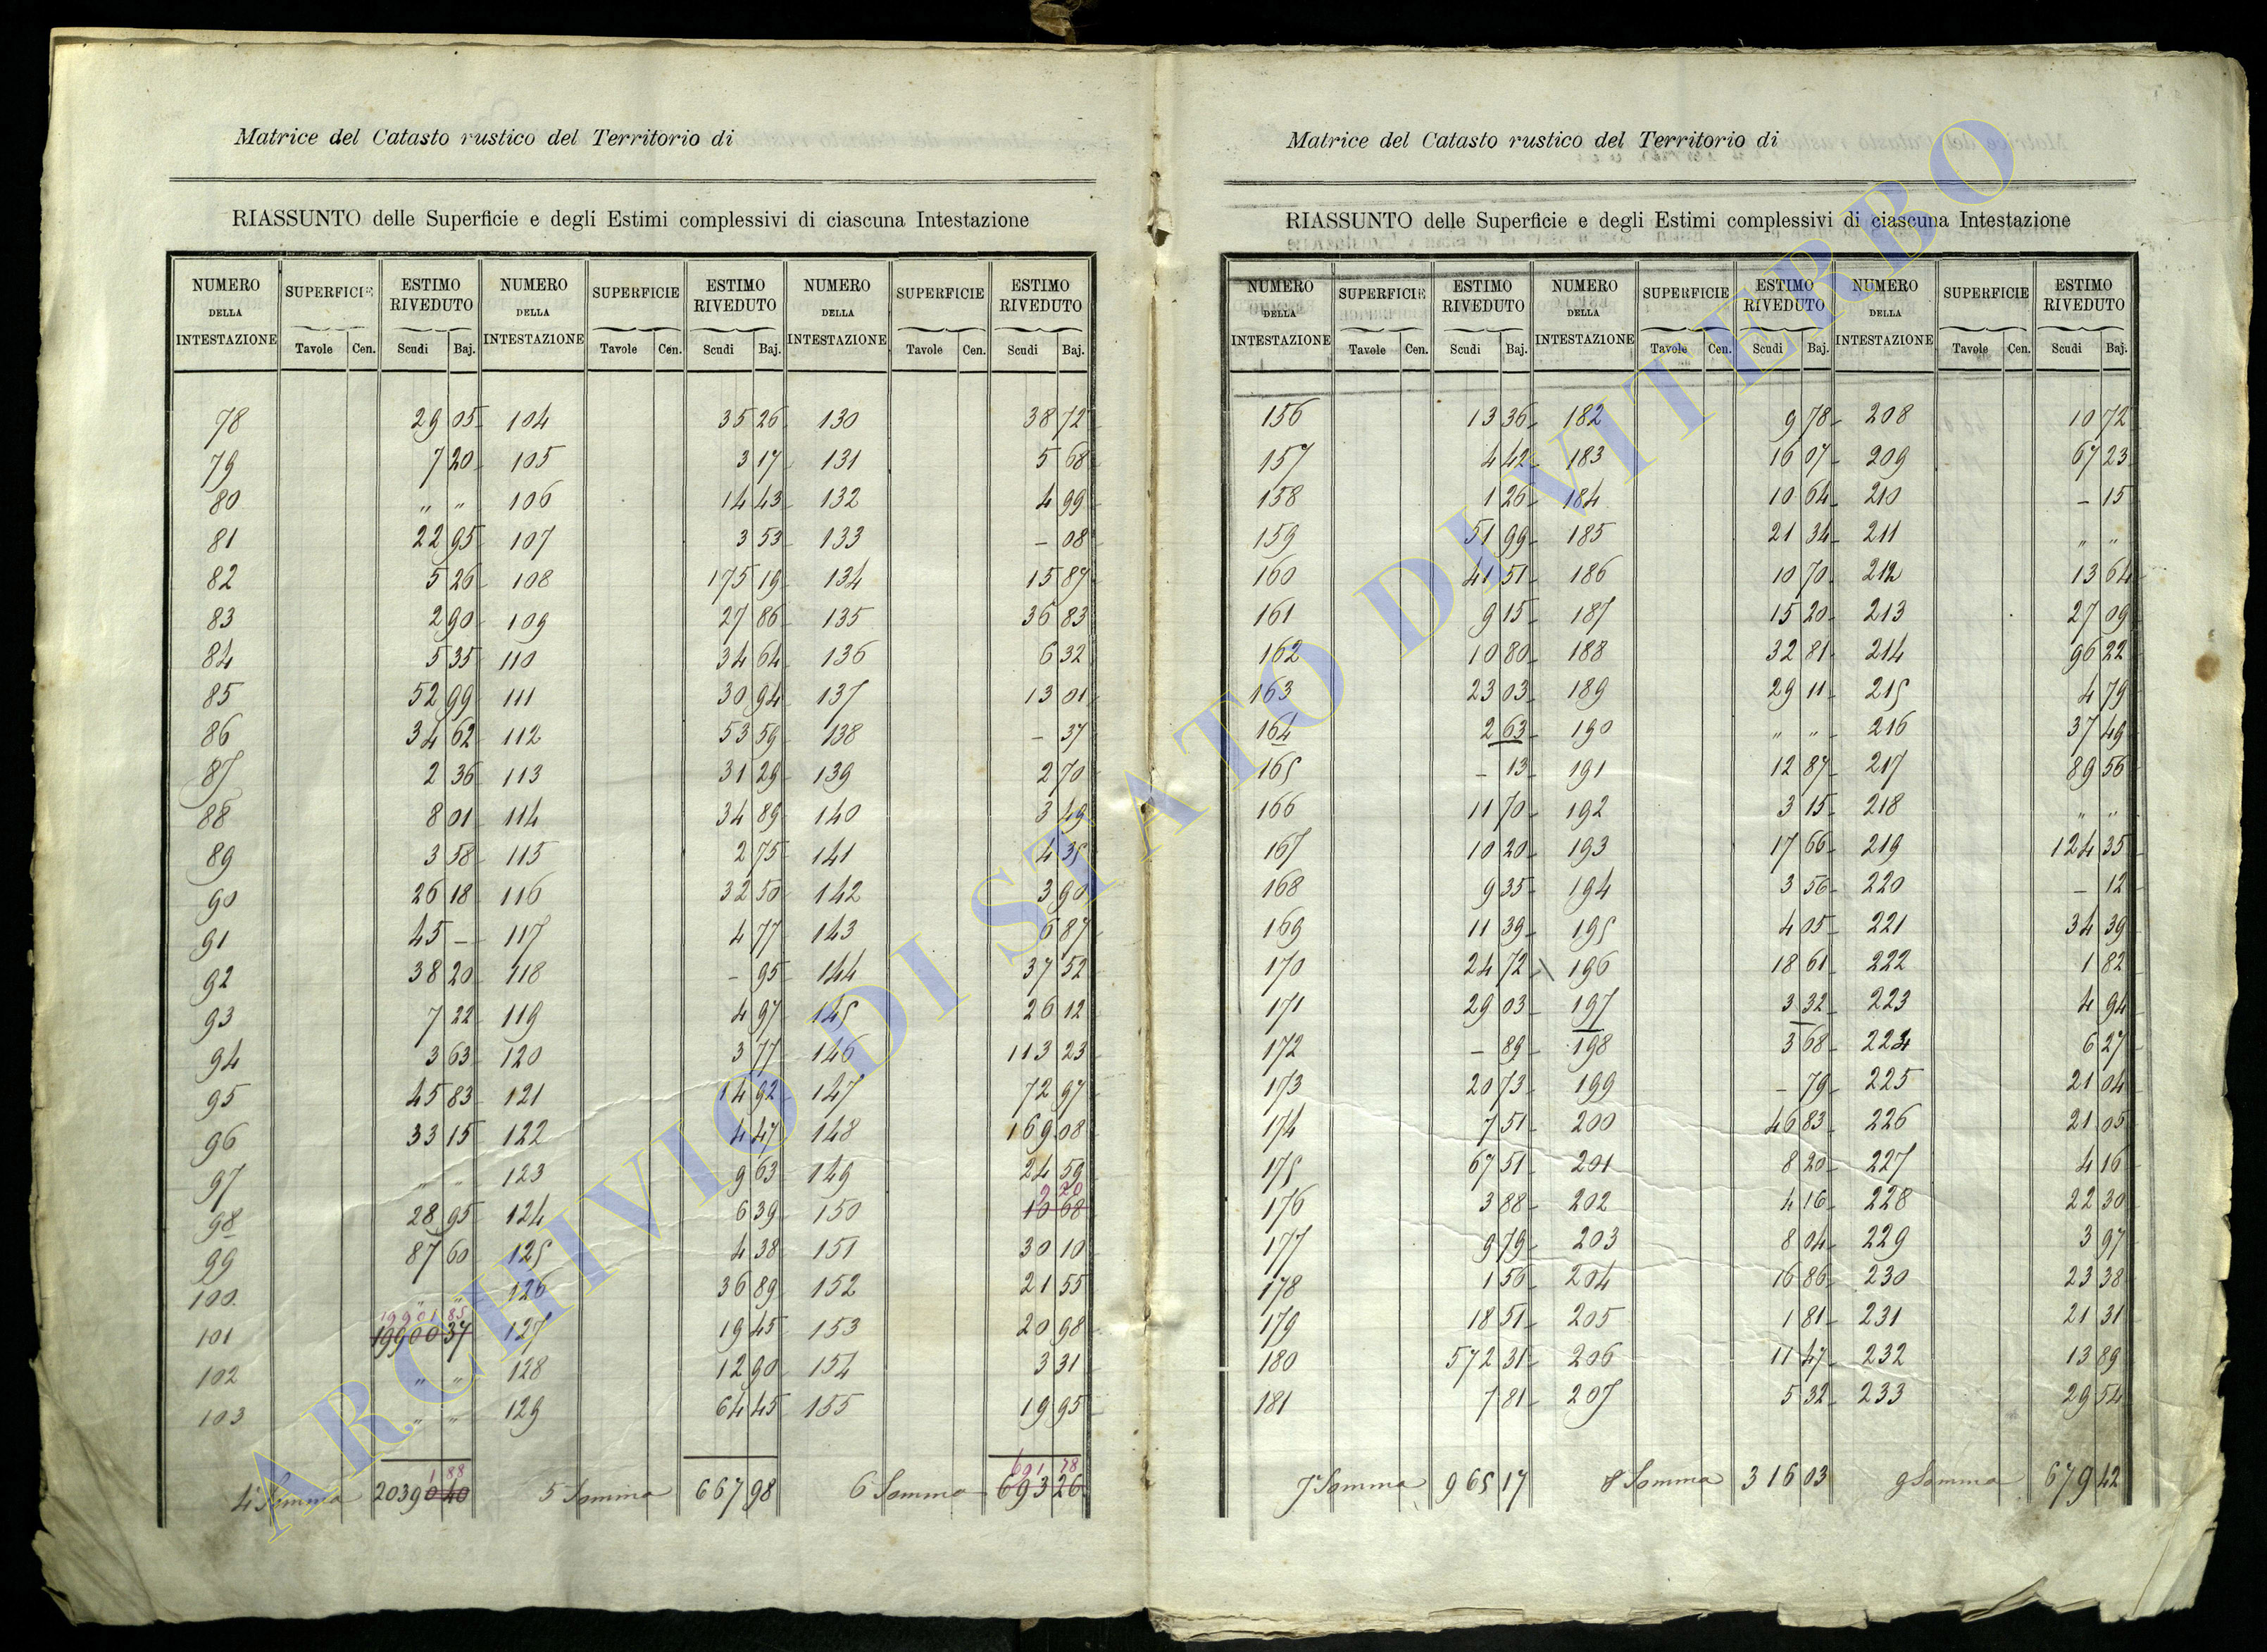 Matrice del Catasto rustico del Territorio di
RIASSUNTO delle Superficie e degli Estimi complessivi di ciascuna Intestazione
NUMERO DELLA INTESTAZIONE SUPERFICIE ESTIMO RIVEDUTO NUMERO DELLA INTESTAZIONE SUPERFICIE ESTIMO RIVEDUTO NUMERO DELLA INTESTAZIONE SUPERFICIE ESTIMO RIVEDUTO
Tavole Cen. Scudi Baj. Tavole Cen. Scudi Baj. Tavole Cen. Scudi Baj.
78 29 05 104 35 26 130 38 72
79 7 20 105 3 17 131 5 68
80 „ „ 106 14 43 132 4 99
81 22 95 107 3 53 133 – 08
82 5 26 108 175 19 134 15 87
83 2 90 109 27 86 135 36 83
84 5 35 110 34 64 136 6 32
85 52 99 111 30 94 137 13 01
86 34 62 112 53 59 138 – 37
87 2 36 113 31 29 139 2 70
88 8 01 114 34 89 140 3 49
89 3 58 115 2 75 141 4 35
90 26 18 116 32 50 142 3 90
91 45 – 117 4 77 143 6 87
92 38 20 118 – 95 144 37 52
93 7 22 119 4 97 145 26 12
94 3 63 120 3 77 146 113 23
95 45 83 121 14 92 147 72 97
96 33 15 122 4 47 148 169 08
97 „ „ 123 9 63 149 24 59
9 20
98 28 95 124 6 39 150 10 68
99 87 60 125 4 38 151 30 10
100 „ „ 126 36 89 152 21 55
19901 85
101 19900 37 127 19 45 153 20 98
102 „ „ 128 12 90 154 3 31
103 „ „ 129 64 45 155 19 95
1 88 691 78
4 Somma 20390 40 5 Somma 667 98 6 Somma 693 26
Matrice del Catasto rustico del Territorio di
RIASSUNTO delle Superficie e degli Estimi complessivi di ciascuna Intestazione
NUMERO DELLA INTESTAZIONE SUPERFICIE ESTIMO RIVEDUTO NUMERO DELLA INTESTAZIONE SUPERFICIE ESTIMO RIVEDUTO NUMERO DELLA INTESTAZIONE SUPERFICIE ESTIMO RIVEDUTO
Tavole Cen. Scudi Baj. Tavole Cen. Scudi Baj. Tavole Cen. Scudi Baj.
156 13 36 182 9 78 208 10 72
157 4 42 183 16 07 209 67 23
158 1 26 184 10 64 210 – 15
159 51 99 185 21 34 211 „ „
160 41 51 186 10 70 212 13 64
161 9 15 187 15 20 213 27 09
162 10 80 188 32 81 214 96 22
163 23 03 189 29 11 215 4 79
164 2 63 190 „ „ 216 37 49
165 – 13 191 12 87 217 89 56
166 11 70 192 3 15 218 „ „
167 10 20 193 17 66 219 124 35
168 9 35 194 3 56 220 – 12
169 11 39 195 4 05 221 34 39
170 24 72 196 18 61 222 1 82
171 29 03 197 3 32 223 4 94
172 – 89 198 3 68 224 6 27
173 20 73 199 – 79 225 21 04
174 7 51 200 46 83 226 21 05
175 67 51 201 8 20 227 4 16
176 3 88 202 4 16 228 22 30
177 9 79 203 8 04 229 3 97
178 1 56 204 16 86 230 23 38
179 18 51 205 1 81 231 21 31
180 572 31 206 11 47 232 13 89
181 7 81 207 5 32 233 29 54
7 Somma 965 17 8 Somma 316 03 9 Somma 679 42
ARCHIVIO DI STATO DI VITERBO